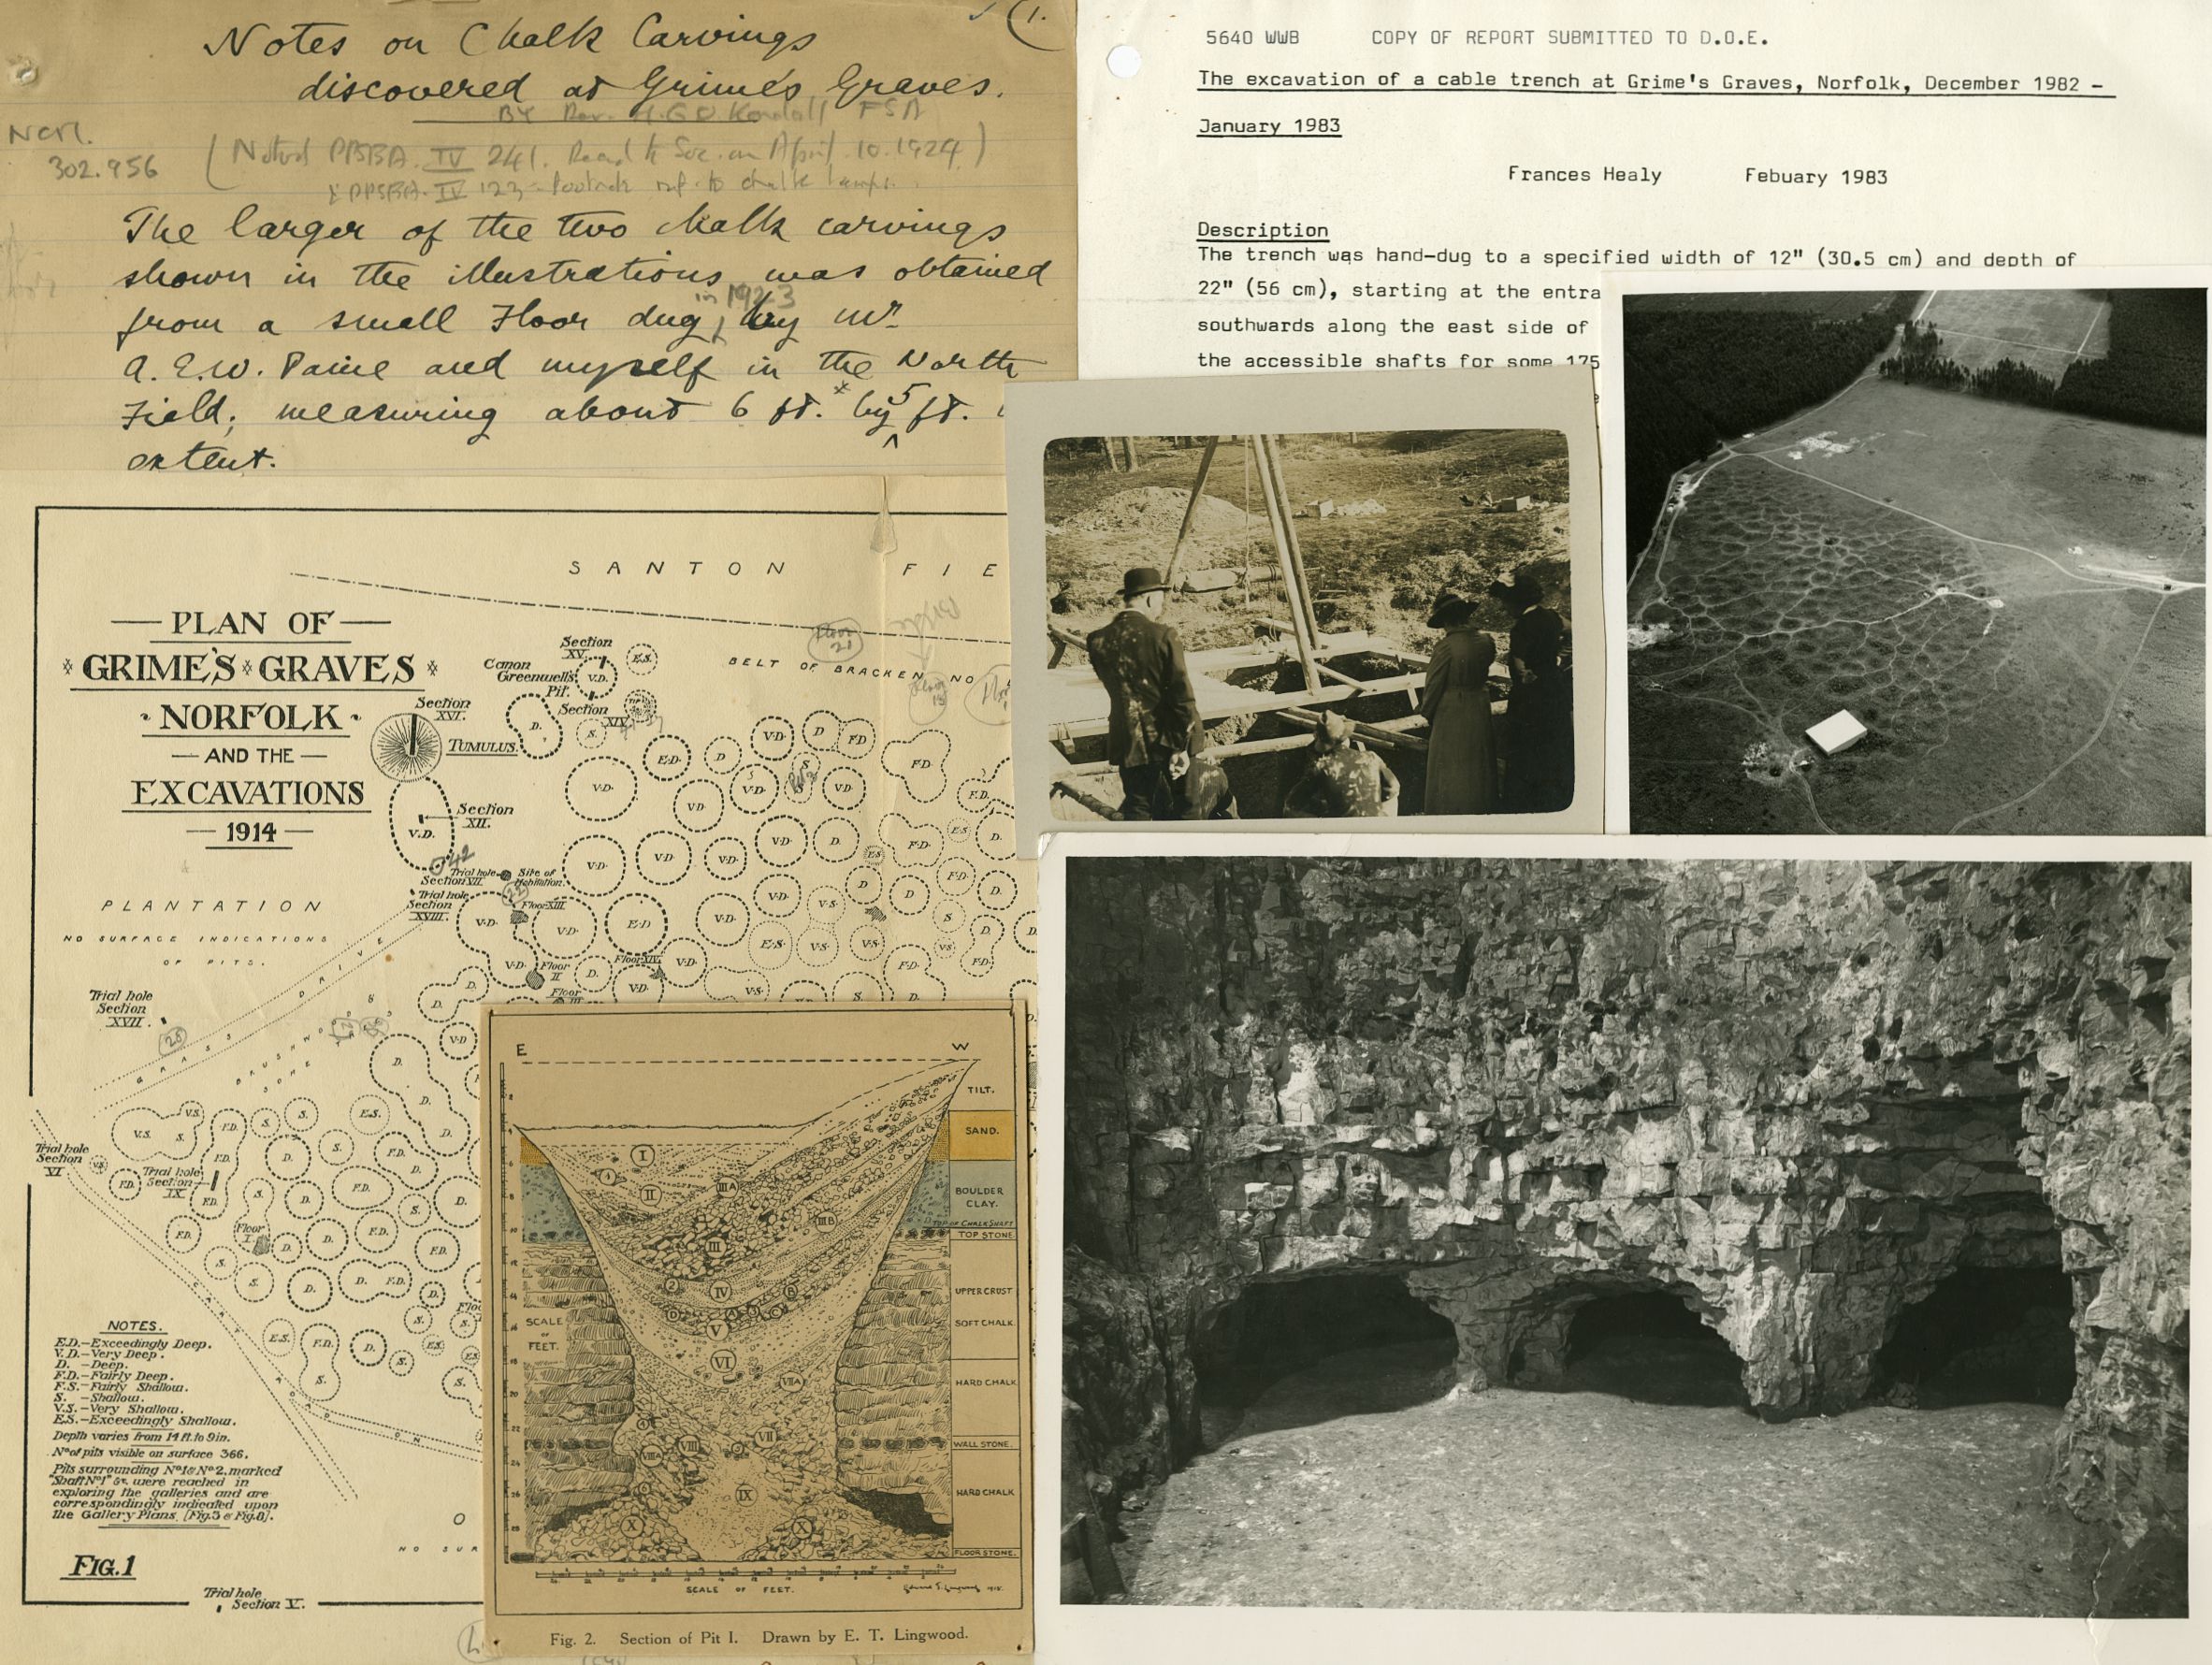 1.
Notes on Chalk Carvings
discovered at Grime's Graves.
BY Rev. H.G.O. Kendall FSA
Ncrl.
302.956
(Noted PPSEA. IV 241. Read to Soc. on April 10. 1924)
PPSEA. IV 123 - footnote ref. to chalk lamps.
The larger of the two chalk carvings
shown in the illustrations was obtained
from a small Floor dug, in 1923 by Mr
A. E. W. Paine and myself in the North
Field; measuring about 6 ft.* by 5 ft.
extent.
5640 WWB COPY OF REPORT SUBMITTED TO D.O.E.
The excavation of a cable trench at Grime's Graves, Norfolk, December 1982 –
January 1983
Frances Healy Febuary 1983
Description
The trench was hand-dug to a specified width of 12" (30.5 cm) and depth of
22" (56 cm), starting at the entra
southwards along the east side of
the accessible shafts for some 175
SANTON FIE
BELT OF BRACKEN NO
PLAN OF
GRIME'S GRAVES
NORFOLK
AND THE
EXCAVATIONS
1914
Section
XV.
Canon
Greenwell's
Pit.
Section
XIV.
Section
XVI.
TUMULUS.
Section
XII.
42
Trial hole
Section VII.
Site of
Habitation.
Trial hole
Section
XVIII.
Floor XIII
Floor XIV
Floor
II
Floor
III
PLANTATION
NO SURFACE INDICATIONS
OF PITS.
GRASS DRIVE
Trial hole
Section
XVII.
Trial hole
Section
VI
Trial hole
Section
IX
Floor
I
CART ROAD
NOTES.
E.D.–Exceedingly Deep.
V.D.–Very Deep.
D. –Deep.
F.D.–Fairly Deep.
F.S.–Fairly Shallow.
S. –Shallow.
V.S.–Very Shallow.
E.S.–Exceedingly Shallow.
Depth varies from 14 ft. to 9 in.
No of pits visible on surface 366.
Pits surrounding No 1 & No 2, marked
"Shaft No 1" &c. were reached in
exploring the galleries and are
correspondingly indicated upon
the Gallery Plans. [Fig. 5 & Fig. 8].
FIG. 1
Trial hole
Section V.
NO SUR
E W
TILT.
SAND.
BOULDER
CLAY.
TOP OF CHALK SHAFT
TOP STONE
UPPER CRUST
SOFT CHALK.
HARD CHALK
WALL STONE.
HARD CHALK
FLOOR STONE.
SCALE
OF
FEET.
I
II
IIIA
IIIB
III
IV
V
VI
VIIA
VII
VIII
VIIIA
IX
X
X
SCALE OF FEET.
Fig. 2. Section of Pit I. Drawn by E. T. Lingwood.